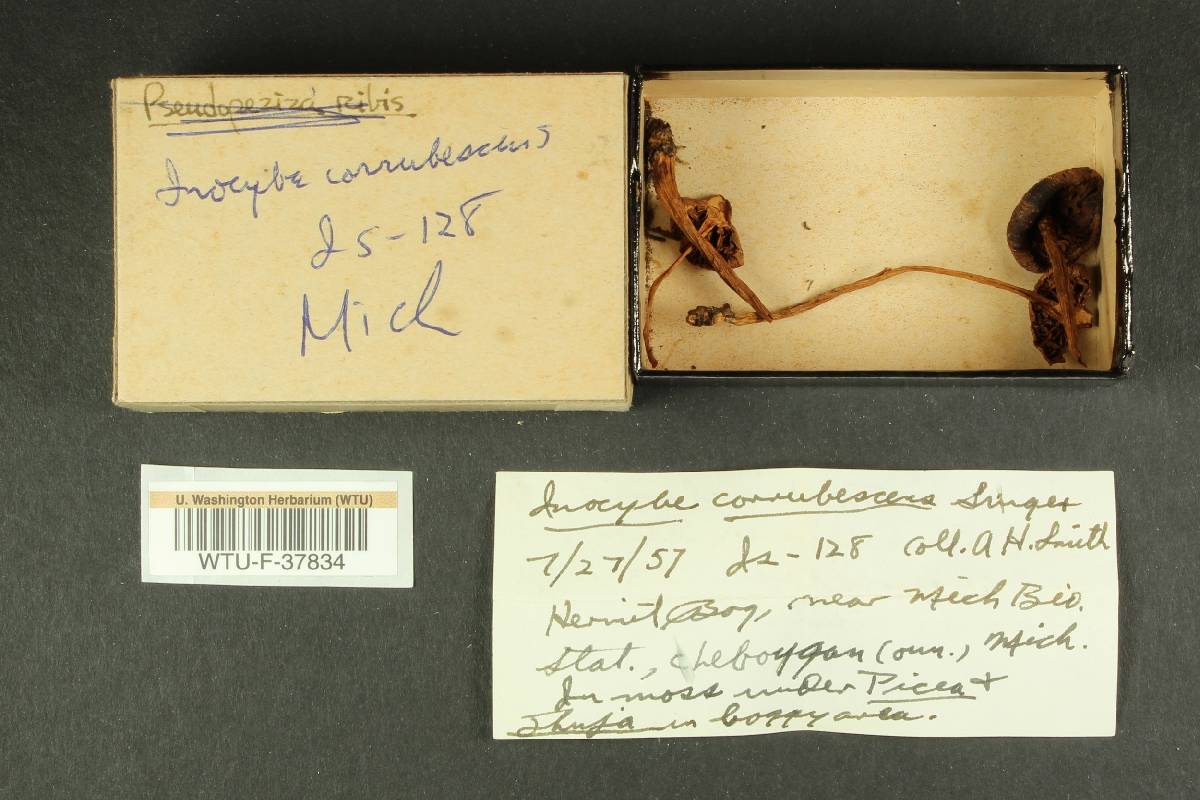 Pseudopeziza ribis
Inocybe corrubescens
Is-128
Mich
U. Washington Herbarium (WTU)
WTU-F-37834
Inocybe corrubescens Singer
7/27/57 Is-128 Coll. A H. Smith
Hermit Bog, near Mich Bio.
Stat., Cheboygan Coun., Mich.
In moss under Picea +
Thuja in boggy area.